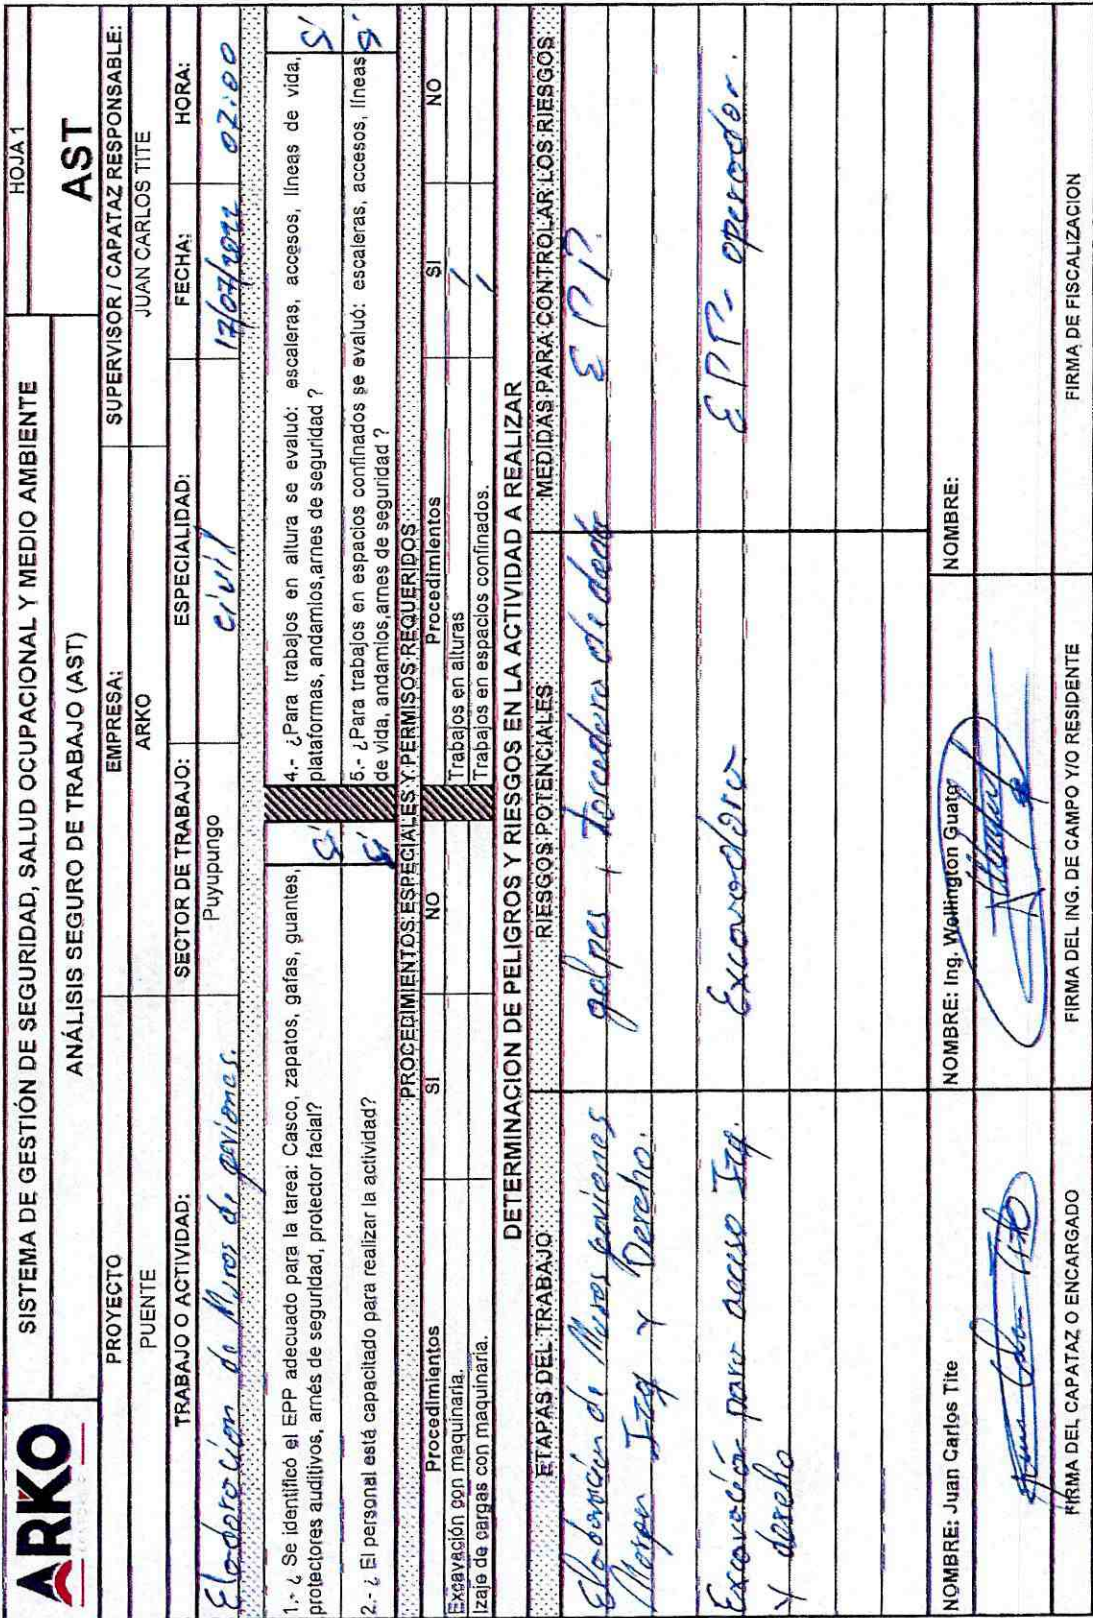 ARKO
SISTEMA DE GESTIÓN DE SEGURIDAD, SALUD OCUPACIONAL Y MEDIO AMBIENTE
HOJA 1
ANÁLISIS SEGURO DE TRABAJO (AST)
AST
PROYECTO
EMPRESA:
SUPERVISOR / CAPATAZ RESPONSABLE:
PUENTE
ARKO
JUAN CARLOS TITE
TRABAJO O ACTIVIDAD:
SECTOR DE TRABAJO:
ESPECIALIDAD:
FECHA:
HORA:
Elaboración de Muros de gaviones.
Puyupungo
civil
17/07/2022
07:00
1.- ¿ Se identificó el EPP adecuado para la tarea: Casco, zapatos, gafas, guantes,
protectores auditivos, arnés de seguridad, protector facial?
Sí
4.- ¿Para trabajos en altura se evaluó: escaleras, accesos, líneas de vida,
plataformas, andamios,arnes de seguridad ?
Sí
2.- ¿ El personal está capacitado para realizar la actividad?
Sí
5.- ¿Para trabajos en espacios confinados se evaluó: escaleras, accesos, líneas
de vida, andamios,arnes de seguridad ?
Sí
PROCEDIMIENTOS ESPECIALES Y PERMISOS REQUERIDOS
Procedimientos
SI
NO
Procedimientos
SI
NO
Excavación con maquinaria.
Trabajos en alturas
/
Izaje de cargas con maquinaria.
Trabajos en espacios confinados.
/
DETERMINACION DE PELIGROS Y RIESGOS EN LA ACTIVIDAD A REALIZAR
ETAPAS DEL TRABAJO
RIESGOS POTENCIALES
MEDIDAS PARA CONTROLAR LOS RIESGOS
Elaboración de Muros gaviones
golpes, torcedura de dedo
EPP.
Margen Izq y Derecho.
Excavación para acceso Izq.
Excavadora
EPP- operador.
y derecho
NOMBRE: Juan Carlos Tite
NOMBRE: Ing. Wellington Guato
NOMBRE:
FIRMA DEL CAPATAZ O ENCARGADO
FIRMA DEL ING. DE CAMPO Y/O RESIDENTE
FIRMA DE FISCALIZACION